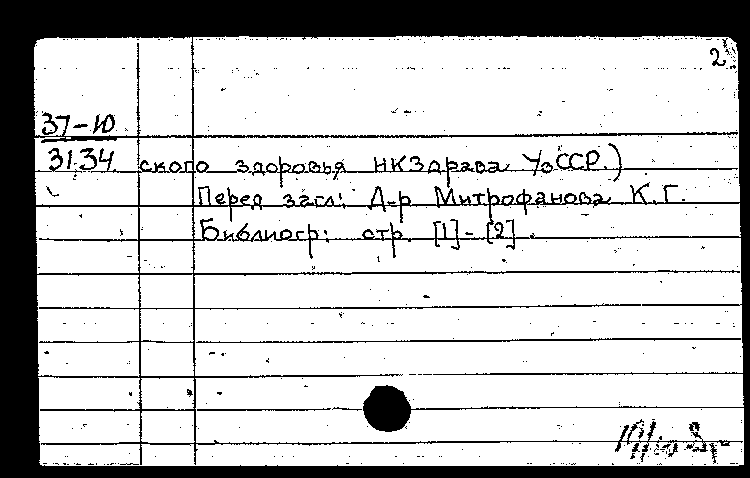 2
37-Ю
31.34 ского здоровья НКЗдрава УзССР.)
Перед загл: Д-р Митрофанова К.Г.
Библиогр: стр. [1]-[2].